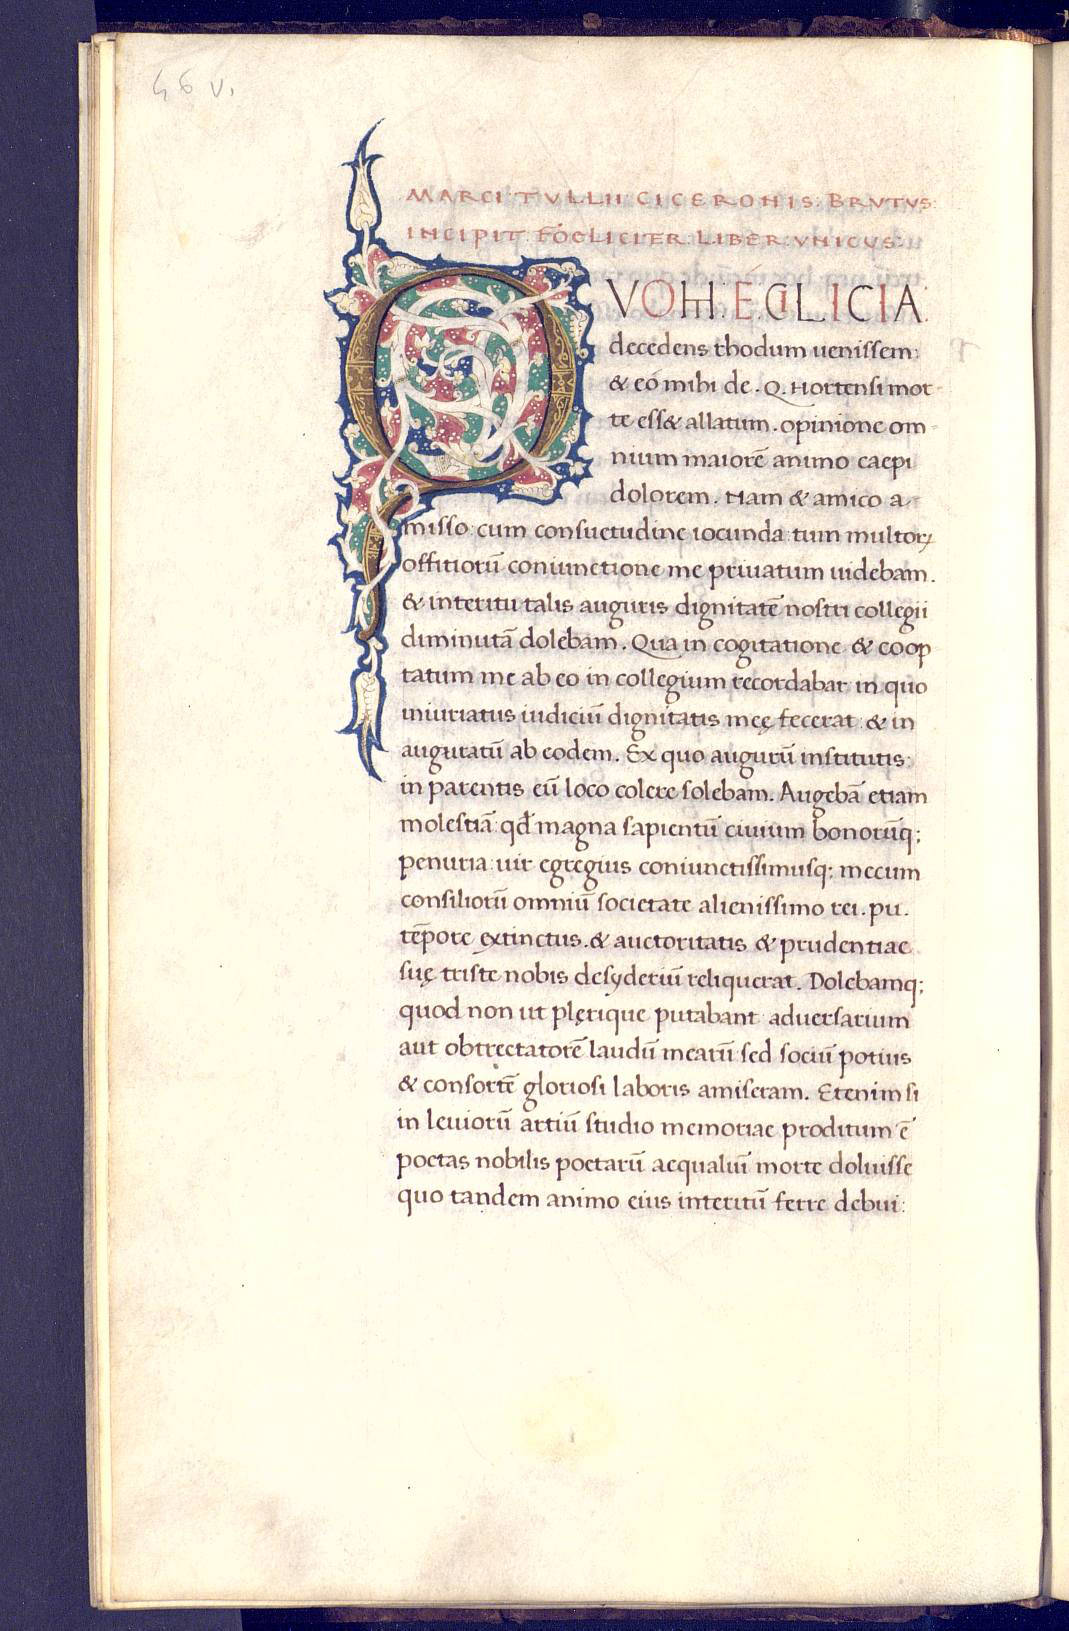 46 v.
MARCI TVLLII CICERONIS. BRVTVS:
INCIPIT. FOELICITER. LIBER. VNICVS:
QVOM. E. CILICIA.
decedens rhodum uenissem:
& eo mihi de. Q. Hortensi mor-
te ess& allatum. opinione om-
nium maiorē animo caepi
dolorem. Nam & amico a-
misso: cum consuetudine iocunda: tum multoꝝ
offitiorū coniunctione me priuatum uidebam.
& interitu talis auguris dignitatē nostri collegii
diminutā dolebam. Qua in cogitatione & coop
tatum me ab eo in collegium recordabar in quo
iniuriatus iudiciū dignitatis meę fecerat: & in
auguratū ab eodem. Ex quo augurū institutis:
in parentis eū loco colere solebam. Augebā etiam
molestiā: qđ magna sapientū ciuium bonorūq;
penuria: uir egregius coniunctissimusq; mecum
consiliorū omniū societate alienissimo rei. pu.
tēpore extinctus. & auctoritatis & prudentiae
suę triste nobis desyderiū reliquerat. Dolebamq;
quod non ut plęrique putabant aduersarium
aut obtrectatorē laudū mearū sed sociū potius
& consortē gloriosi laboris amiseram. Etenim si
in leuiorū artiū studio memoriae proditum ē
poetas nobilis poetarū aequaliū morte doluisse
quo tandem animo eius interitū ferre debui: